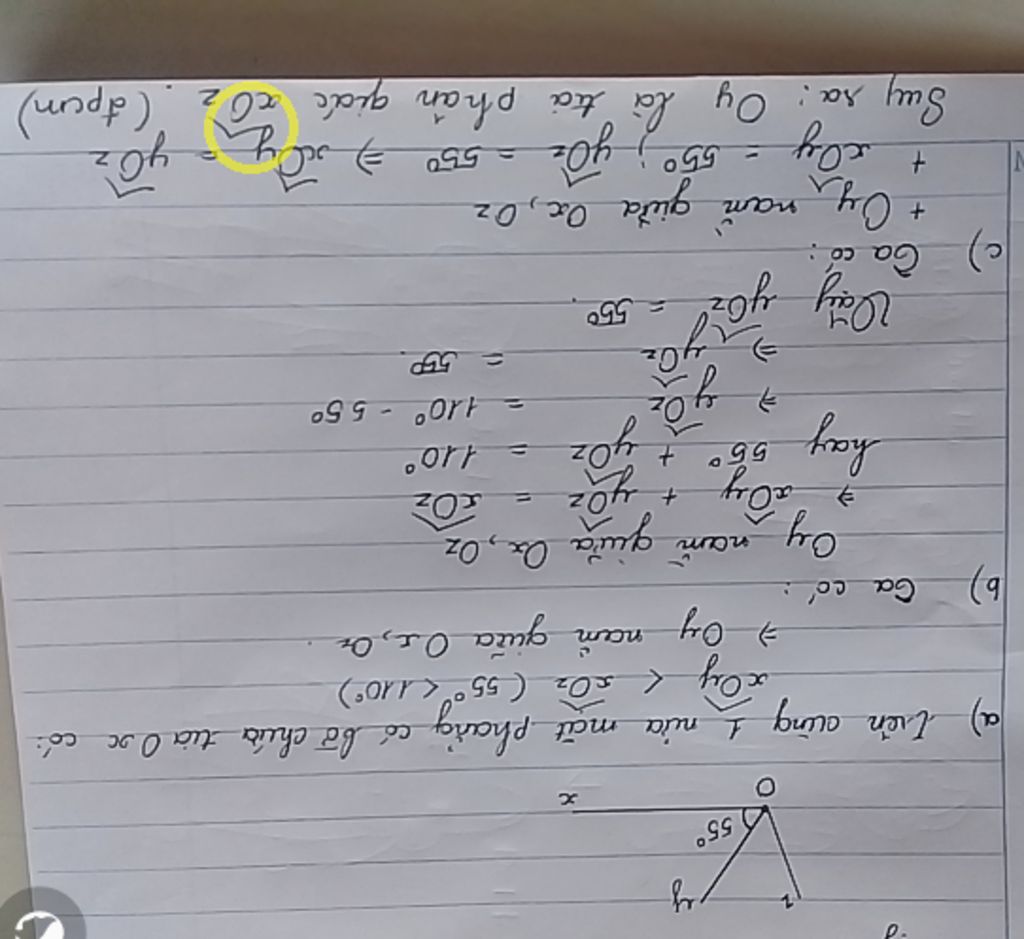 z
y
55°
O
x
a) Trên cùng 1 nửa mặt phẳng có bờ chứa tia Ox có:
xOy < xOz (55° < 110°)
⇒ Oy nằm giữa Ox, Oz.
b) Ta có:
Oy nằm giữa Ox, Oz
⇒ xOy + yOz = xOz
hay 55° + yOz = 110°
⇒ yOz = 110° - 55°
⇒ yOz = 55°.
Vậy yOz = 55°.
c) Ta có:
+ Oy nằm giữa Ox, Oz
+ xOy = 55°; yOz = 55° ⇒ xOy = yOz
Suy ra: Oy là tia phân giác xOz. (đpcm)